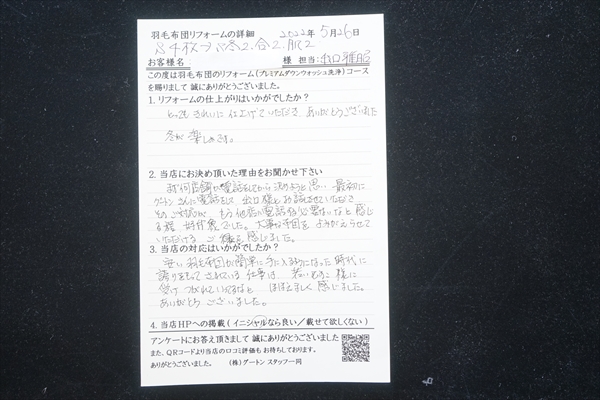 羽毛布団リフォームの詳細 2022年5月26日
S4枚→冬2.合2.肌2
お客様名: 様 担当:出口雅昭
この度は羽毛布団のリフォーム(プレミアムダウンウォッシュ洗浄)コース
を賜りまして 誠にありがとうございました。
1. リフォームの仕上がりはいかがでしたか?
とってもきれいに仕上げていただき、ありがとうございました
冬が楽しみです。
2. 当店にお決め頂いた理由をお聞かせ下さい
何店舗か電話をしてから決めようと思い、最初に
ダートンさんに電話をして 出口様とお話させていただいて
その もう他店に電話する必要ないなと感じ
る程 好印象でした。大事な布団をよみがえらせて
いただける ご縁を感じました。
3. 当店の対応はいかがでしたか?
安い羽毛布団が簡単に手に入るようになった時代に
誇りをもってされている仕事は、若いむすこ様に
受けつがれていってるなと ほほえましく感じました。
ありがとうございました。
4. 当店HPへの掲載 (イニシャルなら良い/載せて欲しくない)
アンケートにお答え頂きまして 誠にありがとうございました
また、QRコードより当店の口コミ評価も お待ちしております。
ありがとうございました。 (株)ダートン スタッフ一同